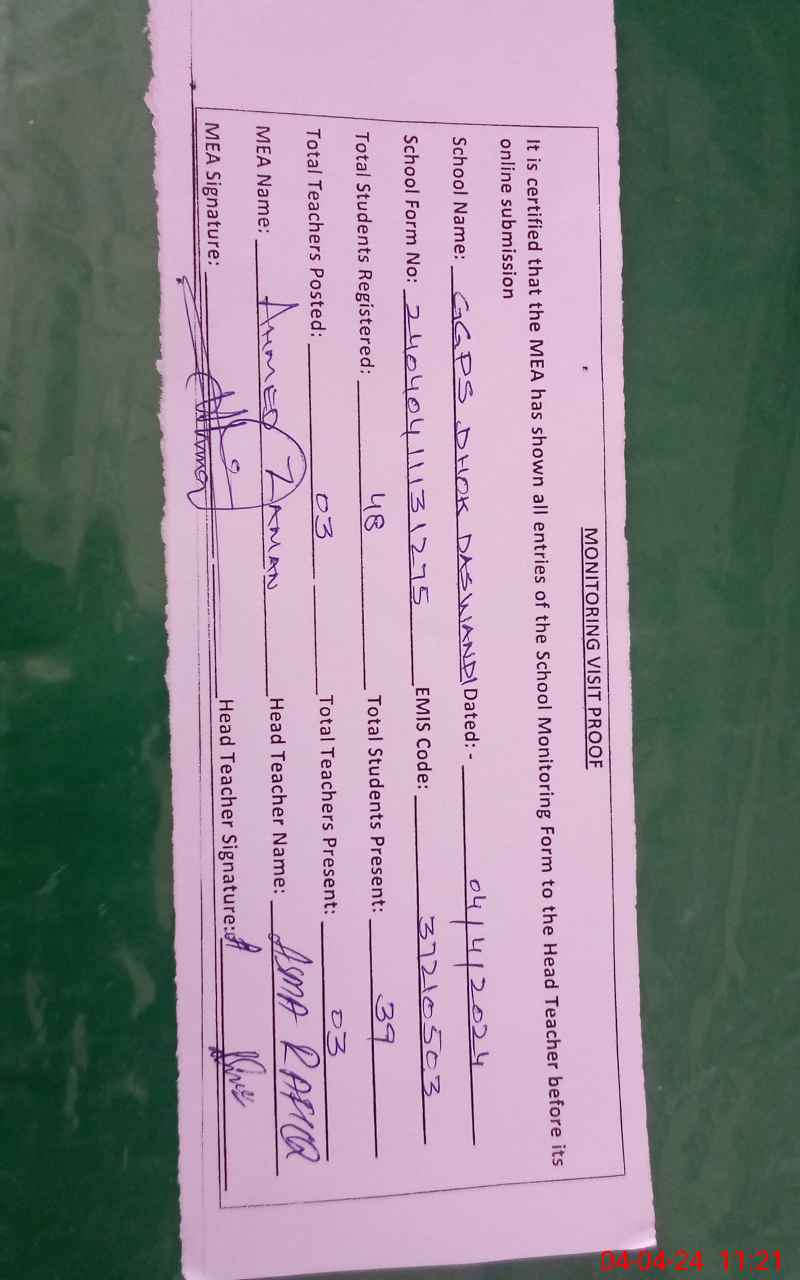 MONITORING VISIT PROOF
It is certified that the MEA has shown all entries of the School Monitoring Form to the Head Teacher before its
online submission
School Name: GGPS DHOK DASWANDI Dated: - 04/4/2024
School Form No: 2404041131275 EMIS Code: 37210503
Total Students Registered: 48 Total Students Present: 39
Total Teachers Posted: 03 Total Teachers Present: 03
MEA Name: AHMED ZAMAN Head Teacher Name: ASMA
MEA Signature: Head Teacher Signature:
04-04-24 11:21